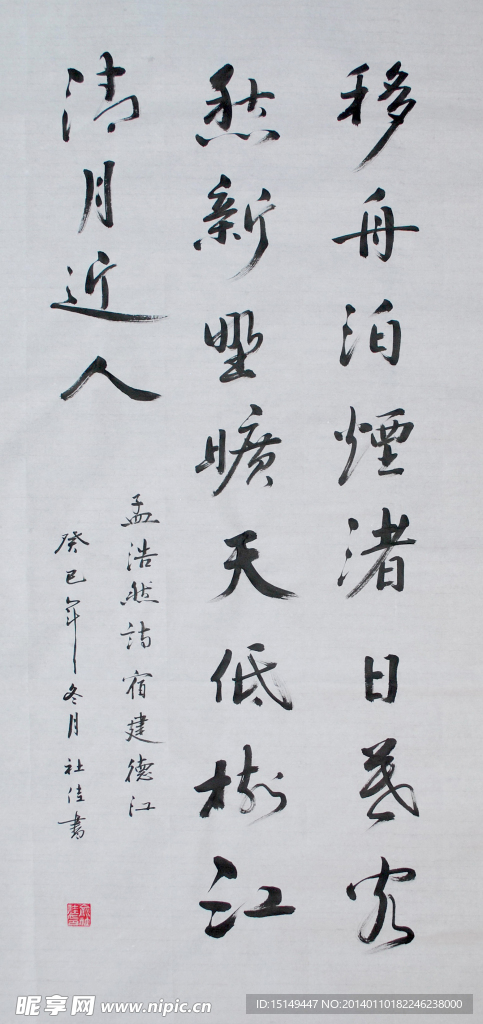 移舟泊煙渚日暮客
愁新野曠天低樹江
清月近人
孟浩然詩宿建德江
癸巳年冬月社佳書
昵享网 www.nipic.cn
ID:15149447 NO:20140110182246238000